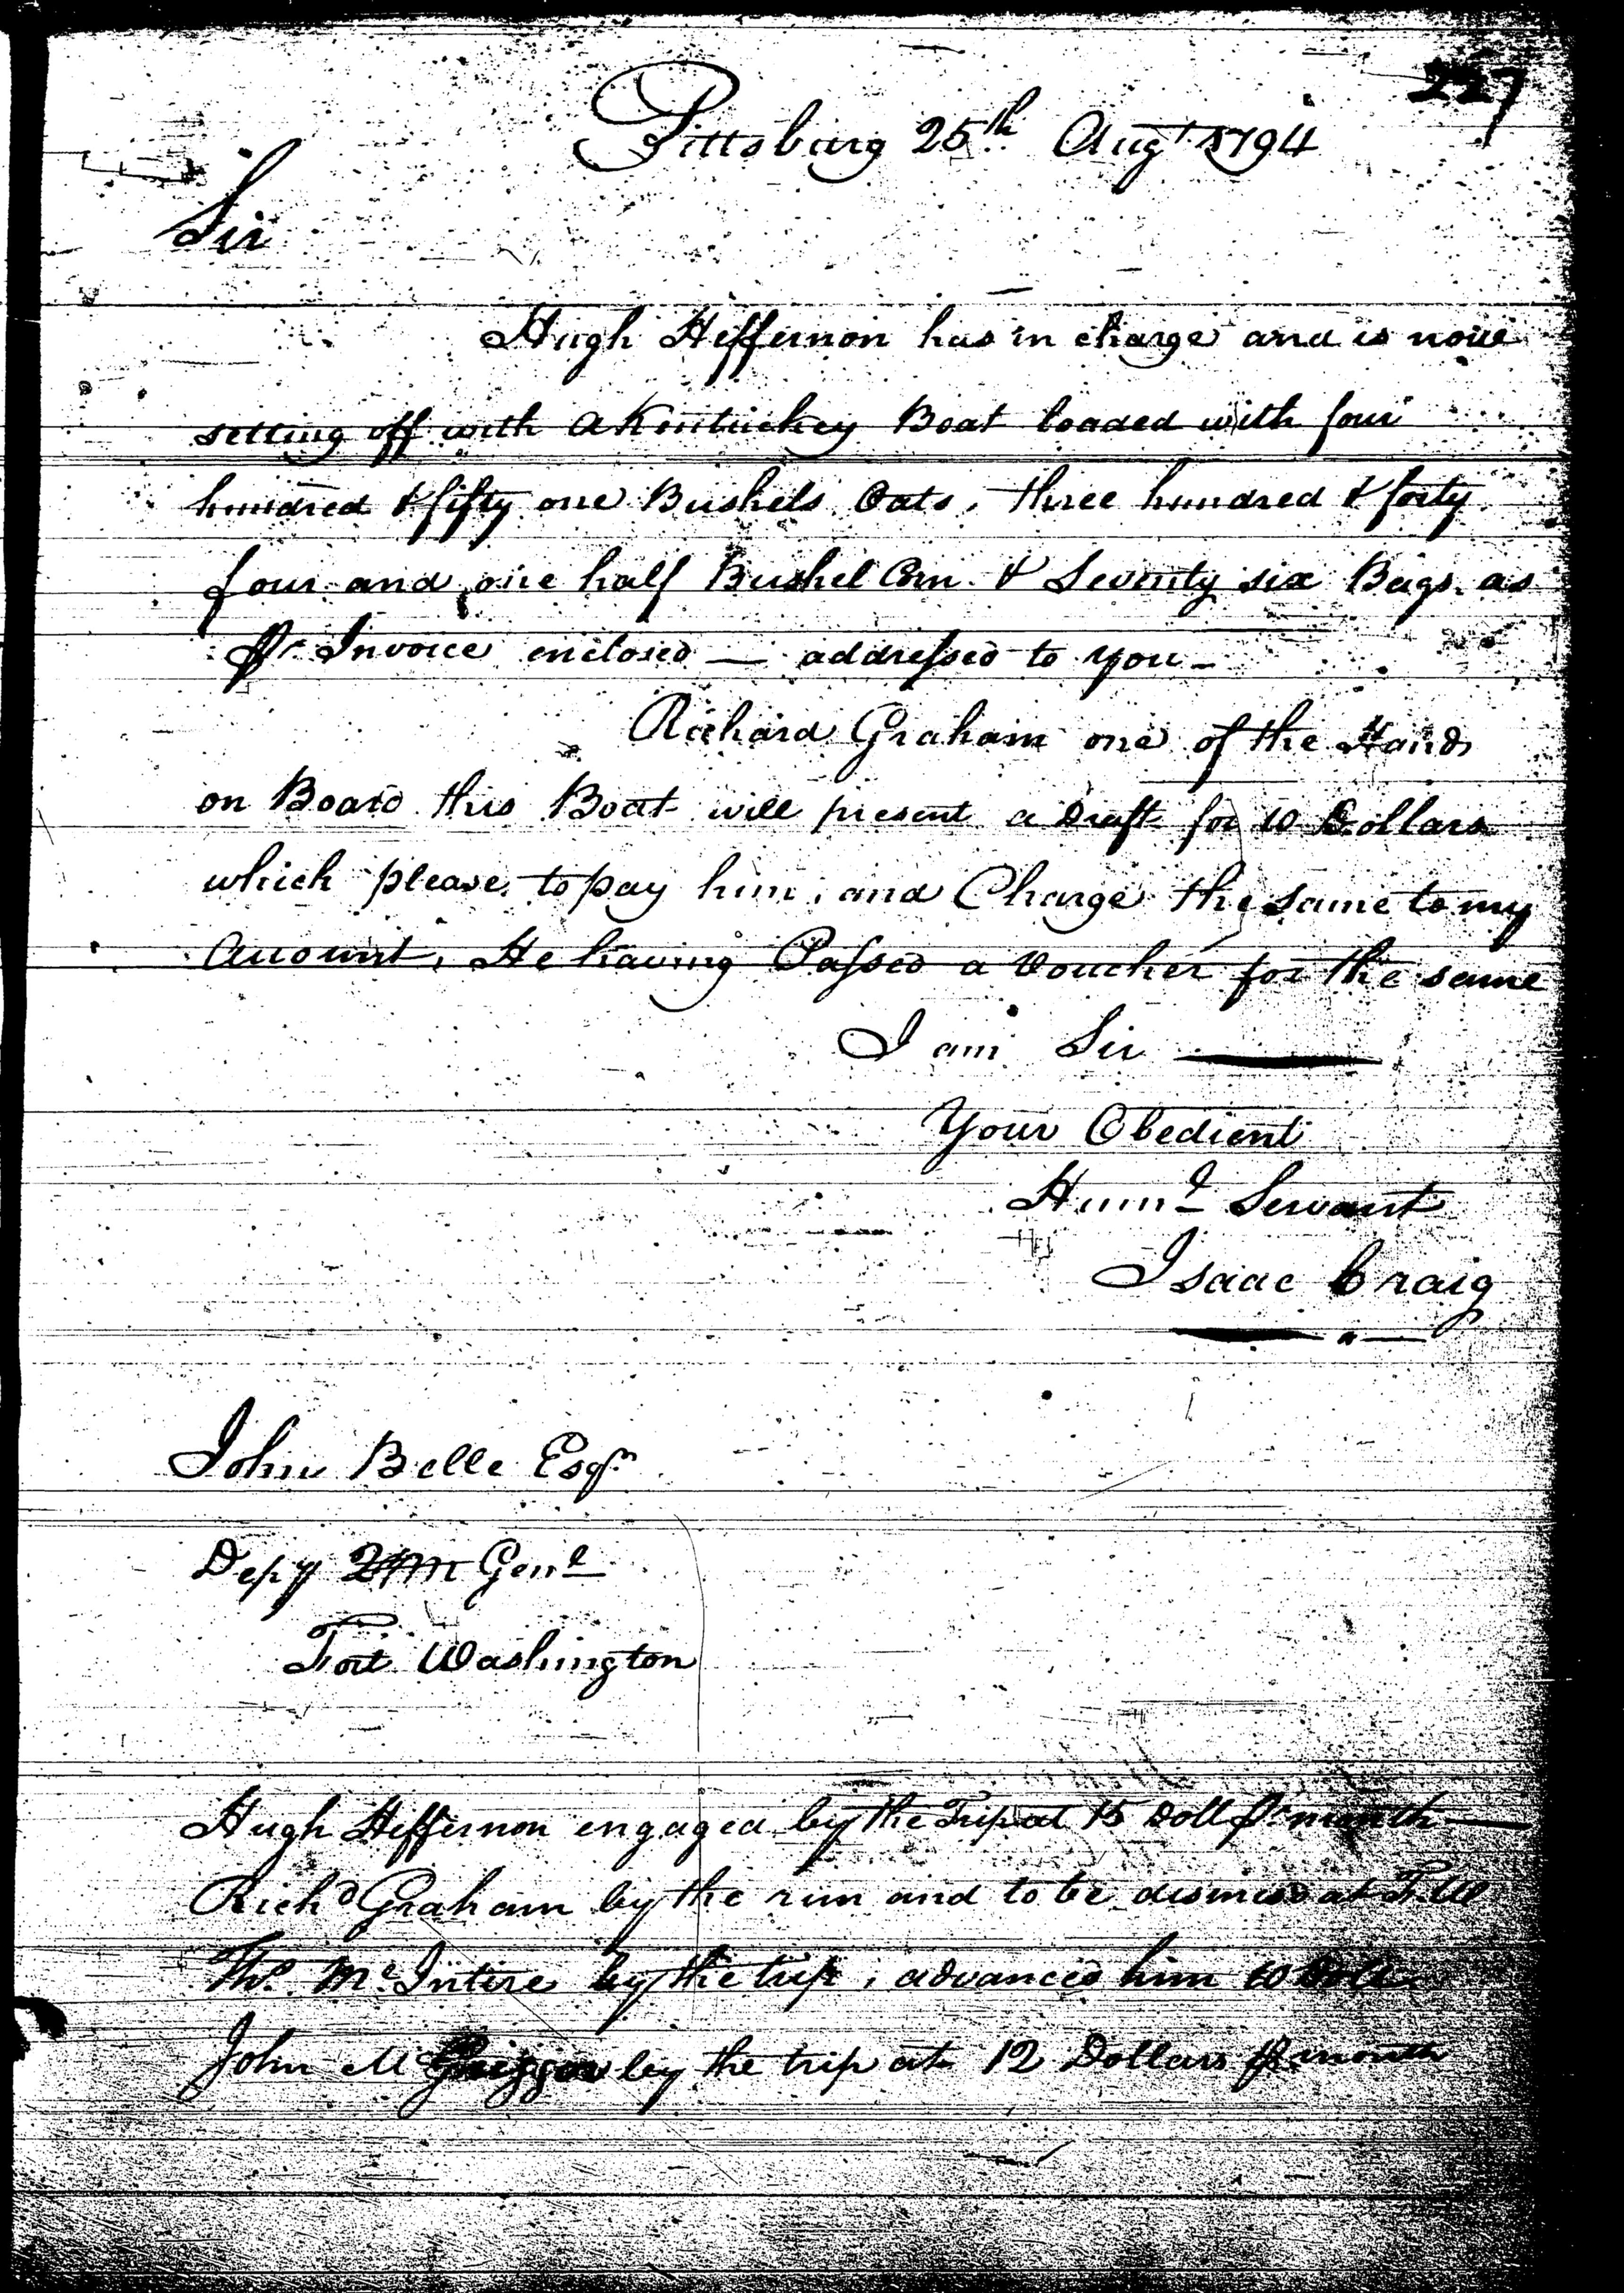 227
Pittsburg 25th Augt 1794
Sir
Hugh Heffernon has in charge and is now
setting off with a Kentuckey Boat loaded with four
hundred & fifty one Bushels Oats, three hundred & forty
four and one half Bushel Corn & Seventy six Bags as
Pr Invoice enclosed — addressed to you —
Richard Graham one of the Hands
on Board this Boat will present a Draft for 10 Dollars
which please to pay him, and Charge the same to my
Account, He having Passed a Voucher for the same
I am Sir
Your Obedient
Humle Servant
Isaac Craig
John Belle Esqr
Depy QM Genl
Fort Washington
Hugh Heffernon engaged by the Trip at 15 Doll Pr month
Richd Graham by the run and to be dismisd at F.W
Thos McIntire by the trip, advanced him 10 Dolls
John M by the trip at 12 Dollars Pr month